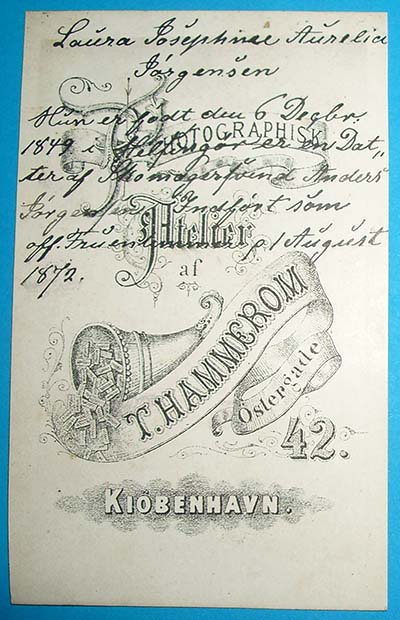 Laura Josephine Aurelia
Jörgensen
Hun er födt den 6 Decbr.
1849 i Helsingör er en Dat„
ter af Skomagersvend Anders
Jörgensen Indfört som
off. Fruentimmer p. 1 August
1872.
PHOTOGRAPHISK
Atelier
af
T. HAMMEROM
Östergade
42.
KIÖBENHAVN.